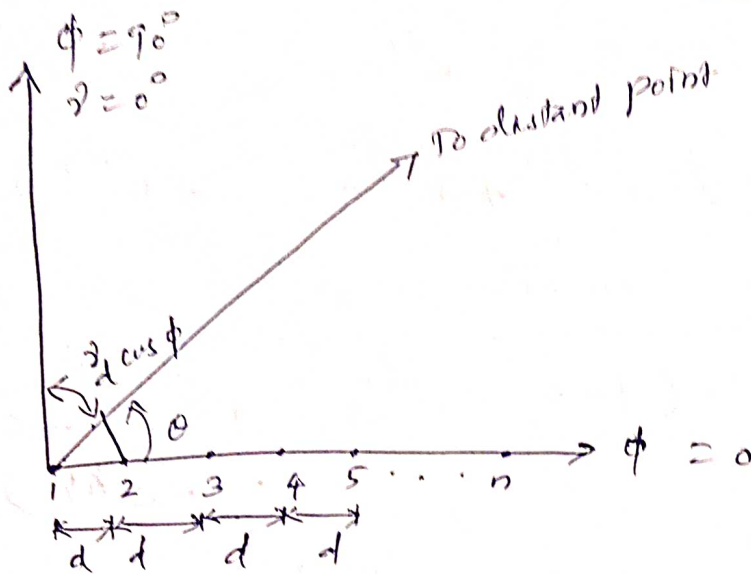 ϕ = 90°
γ = 0°
To distant point
d cos ϕ
θ
ϕ = 0
1 2 3 4 5 . . . . n
d d d d